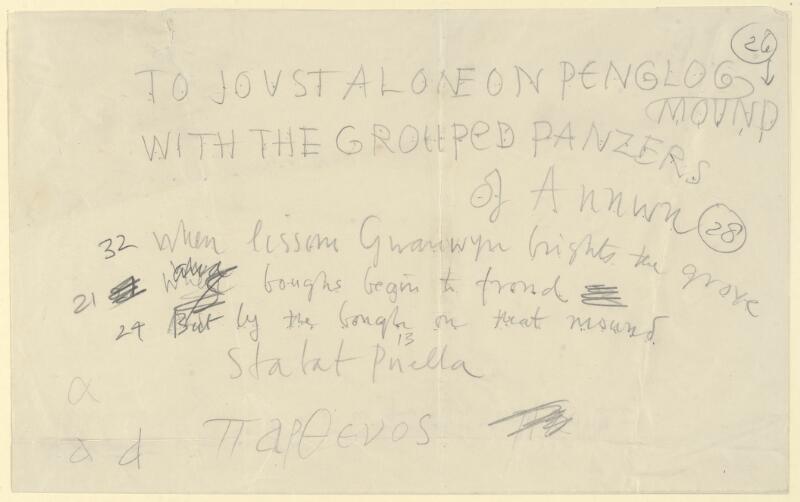 26
TO JOUST ALONE ON PENGLOG
MOUND
WITH THE GROUPED PANZERS
of Annwn 28
32 When lissom Gwanwyn brights the grove
21 boughs begin to frond
24 But by the bough on that mound
13
Stabat Puella
α
a d παρθενος